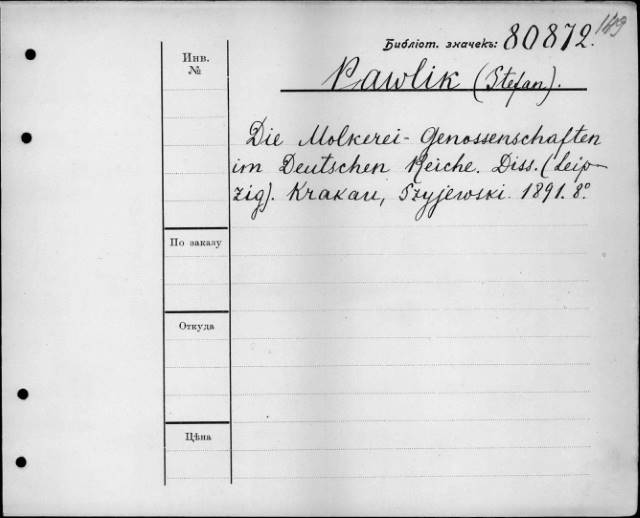 169
Библіот. значекъ: 80872.
Инв.
№
Pawlik (Stefan).
Die Molkerei-Genossenschaften
im Deutschen Reiche. Diss. (Leip-
zig). Krakau, Szyjewski. 1891. 8º.
По заказу
Откуда
Цѣна